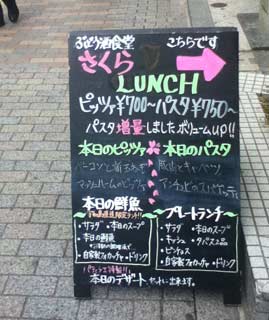 ぶどう酒食堂 こちらです
さくら
LUNCH
ピッツァ¥700〜パスタ¥750〜
パスタ増量しましたボリュームUP!!
本日のピッツァ 本日のパスタ
ベーコンと
マッシュルームのピッツァ
キャベツ
アンチョビのスパゲッティ
本日の鮮魚 プレートランチ
・サラダ ・本日のスープ
・本日の鮮魚
・自家製フォカッチャ ・ドリンク
・サラダ ・スープ
・キッシュ ・タパス2品
・ピクルス
・自家製フォカッチャ ・ドリンク
本日のデザート セットに出来ます。